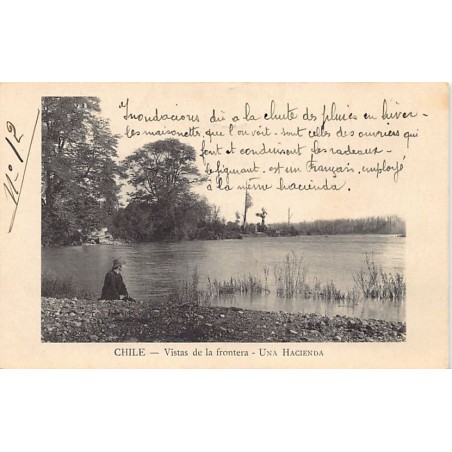 Nº 12
"Inondacions dû a la chute des pluies en hiver-
les maisonettes, que l'on voit- sont celles des ouvriers qui
font et conduisent les radeaux-
le figurant, est un Français, employé
à la même hacienda.
CHILE — Vistas de la frontera - UNA HACIENDA